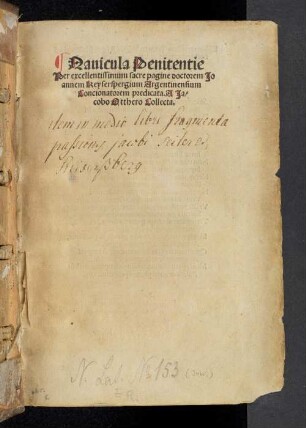 ¶ Nauicula Penitentie
Per excellentissimum sacre pagine doctorem Jo
annem Keyserspergium Argentinensium
Concionatorem predicata. A Ja-
cobo Otthero Collecta.
item in medio libri fragmenta
passionis jacobi
N. Lat. No 153 (Inc.)